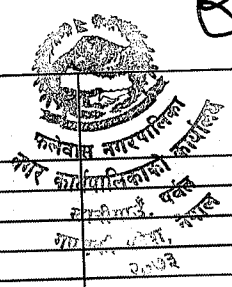 फलेवास नगरपालिका
नगर कार्यपालिकाको कार्यालय
पर्वत
नेपाल
२०७३